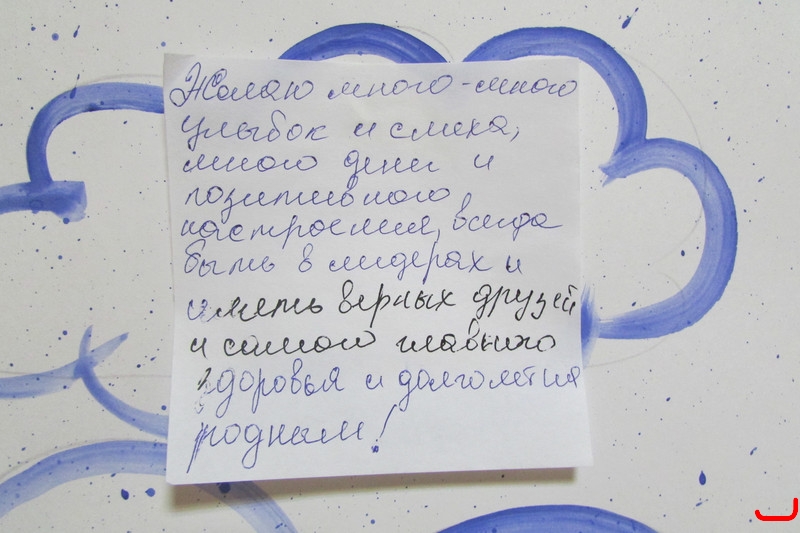 Желаю много-много
улыбок и смеха,
много денег и
позитивного
настроения, всегда
быть в лидерах и
иметь верных друзей
и самого главного
здоровья и долголетия
родным!